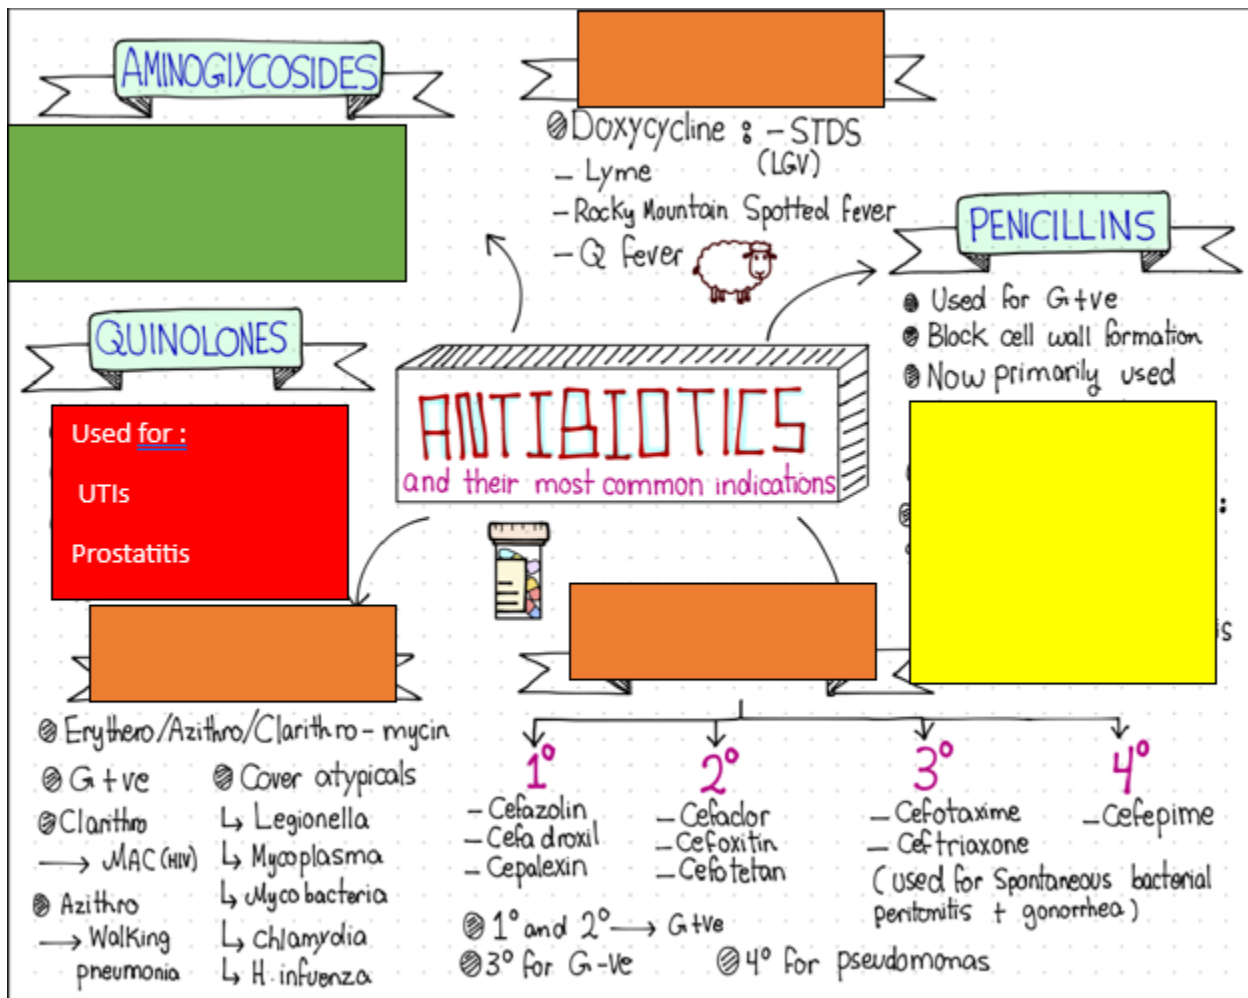 AMINOGLYCOSIDES
Doxycycline : - STDS
(LGV)
- Lyme
- Rocky Mountain Spotted fever
- Q fever
PENICILLINS
Used for G+ve
Block cell wall formation
Now primarily used
:
is
QUINOLONES
Used for :
UTIs
Prostatitis
ANTIBIOTICS
and their most common indications
Erythero/Azithro/Clarithro-mycin
G+ve
Clarithro
→ MAC (HIV)
Azithro
→ Walking
pneumonia
Cover atypicals
↳ Legionella
↳ Mycoplasma
↳ Mycobacteria
↳ Chlamydia
↳ H. infuenza
1°
- Cefazolin
- Cefadroxil
- Cepalexin
2°
- Cefaclor
- Cefoxitin
- Cefotetan
3°
- Cefotaxime
- Ceftriaxone
(used for Spontaneous bacterial
peritonitis + gonorrhea)
4°
- Cefepime
1° and 2° → G+ve
3° for G-ve
4° for pseudomonas